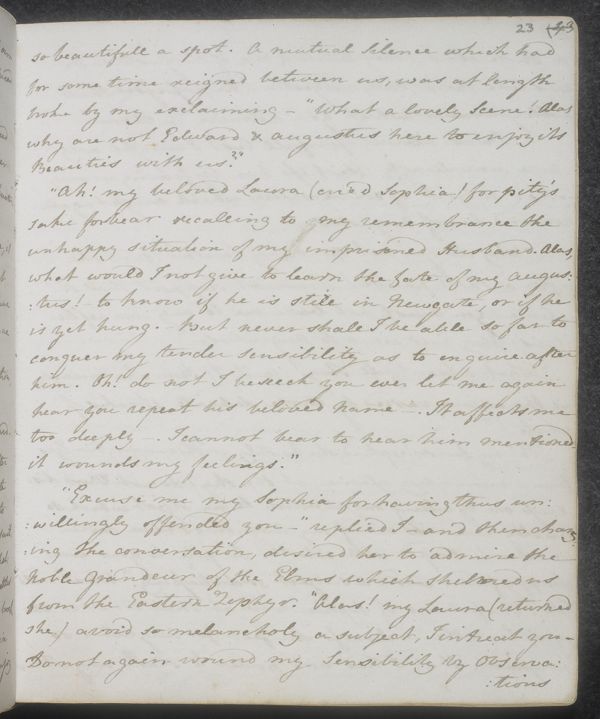 23 43
so beautifull a spot. A mutual Silence which had
for some time reigned between us, was at length
broke by my exclaiming – "What a lovely Scene! Alas
why are not Edward & Augustus here to enjoy its
Beauties with us?"
"Ah! my beloved Laura (cried Sophia) for pity's
sake forbear recalling to my remembrance the
unhappy situation of my imprisoned Husband. Alas,
what would I not give to learn the fate of my Augus:
:tus! – to know if he is still in Newgate, or if he
is yet hung. But never shall I be able so far to
conquer my tender sensibility as to enquire after
him. Oh! do not I beseech you ever let me again
hear you repeat his beloved Name –. It affects me
too deeply –. I cannot bear to hear him mentioned,
it wounds my feelings."
"Excuse me my Sophia for having thus un:
:willingly offended you –" replied I – and then chang
:ing the conversation, desired her to admire the
Noble Grandeur of the Elms which sheltered us
from the Eastern Zephyr. "Alas! my Laura (returned
she) avoid so melancholy a subject, I intreat you –
Do not again wound my Sensibility by Observa:
:tions